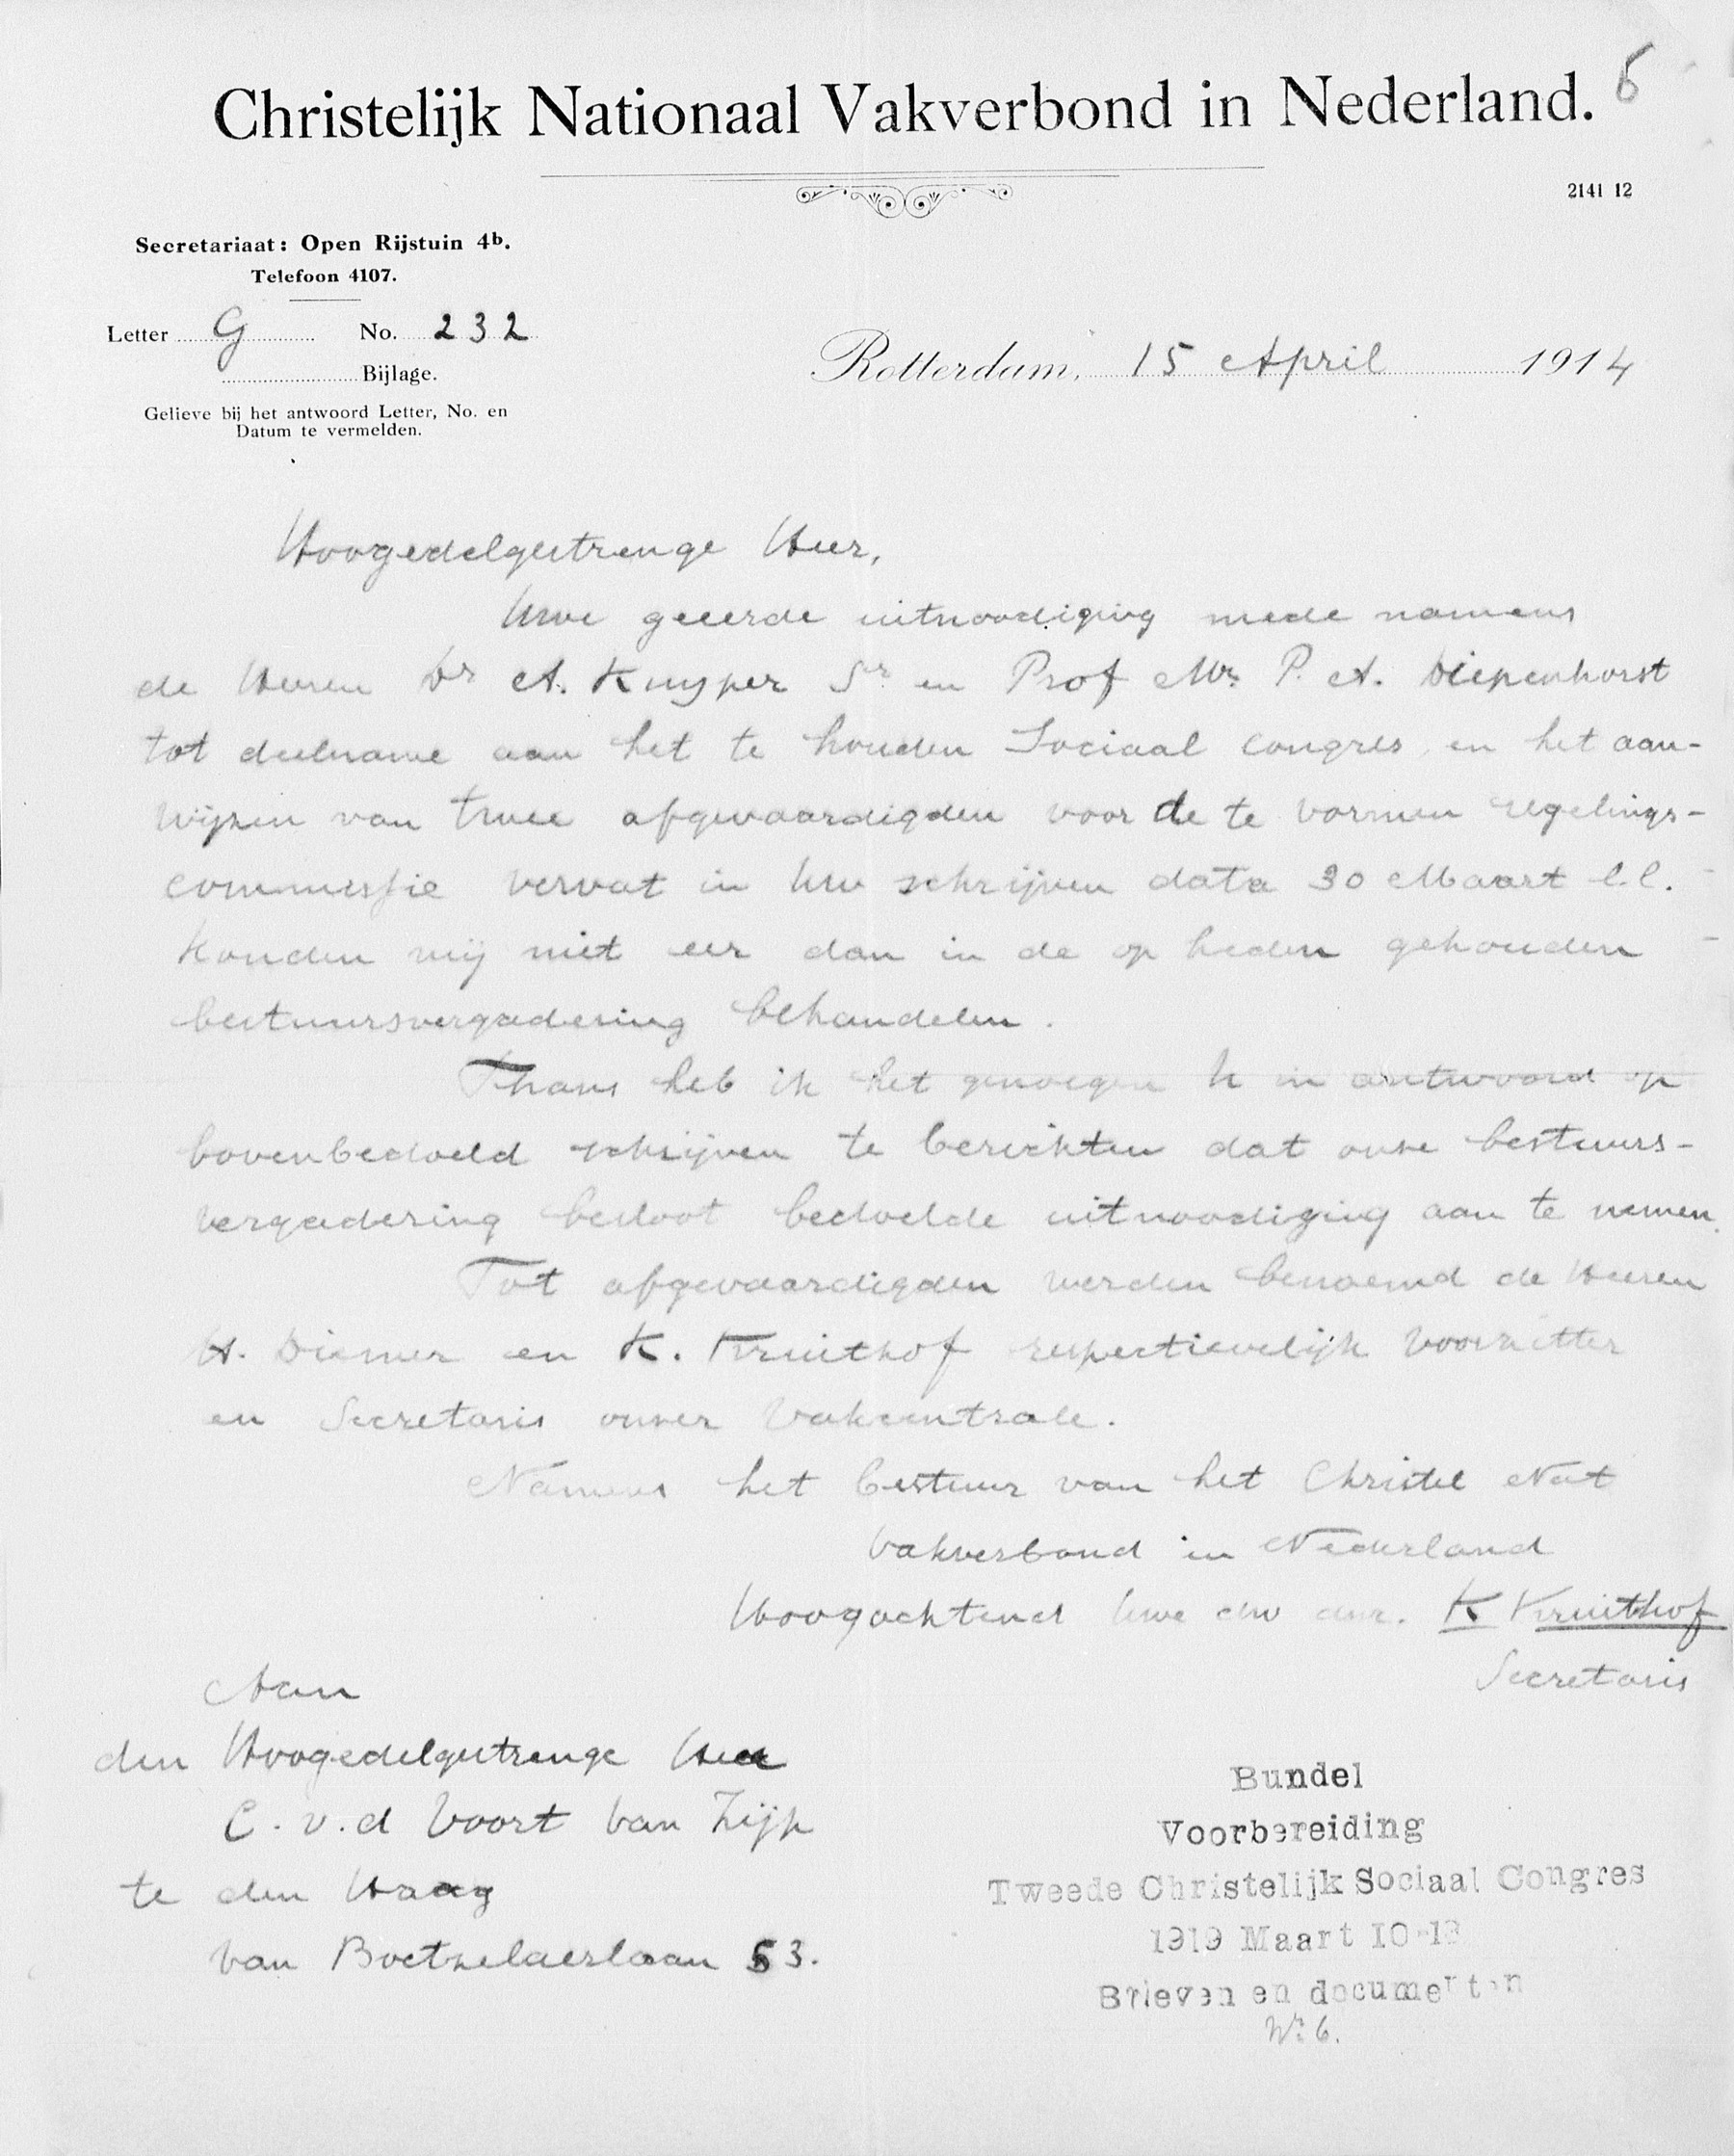 6
Christelijk Nationaal Vakverbond in Nederland.
2141 12
Secretariaat: Open Rijstuin 4b.
Telefoon 4107.
Letter G No. 232
Bijlage.
Gelieve bij het antwoord Letter, No. en
Datum te vermelden.
Rotterdam, 15 April 1914
Hoogedelgestrenge Heer,
Uwe geeerde uitnoodiging mede namens
de Heeren Dr A. Kuyper Sr en Prof Mr. P. A. Diepenhorst
tot deelname aan het te houden Sociaal Congres en het aan-
wijzen van twee afgevaardigden voor de te vormen regelings-
commissie vervat in Uw schrijven data 30 Maart l.l.
konden wij niet eer dan in de op heden gehouden
bestuursvergadering behandelen.
Thans heb ik het genoegen U in antwoord op
bovenbedoeld schrijven te berichten dat onze bestuurs-
vergadering besloot bedoelde uitnoodiging aan te nemen.
Tot afgevaardigden werden benoemd de Heeren
H. Diemer en K. Kruithof respectievelijk Voorzitter
en Secretaris onzer Vakcentrale.
Namens het bestuur van het Christel Nat
Vakverbond in Nederland
Hoogachtend Uwe dw dnr. K Kruithof
Secretaris
Aan
den Hoogedelgestrenge Heer
C. v.d Voort van Zijp
te den Haag
van Boetzelaerlaan 53.
Bundel
Voorbereiding
Tweede Christelijk Sociaal Congres
1919 Maart 10-13
Brieven en documenten
No 6.